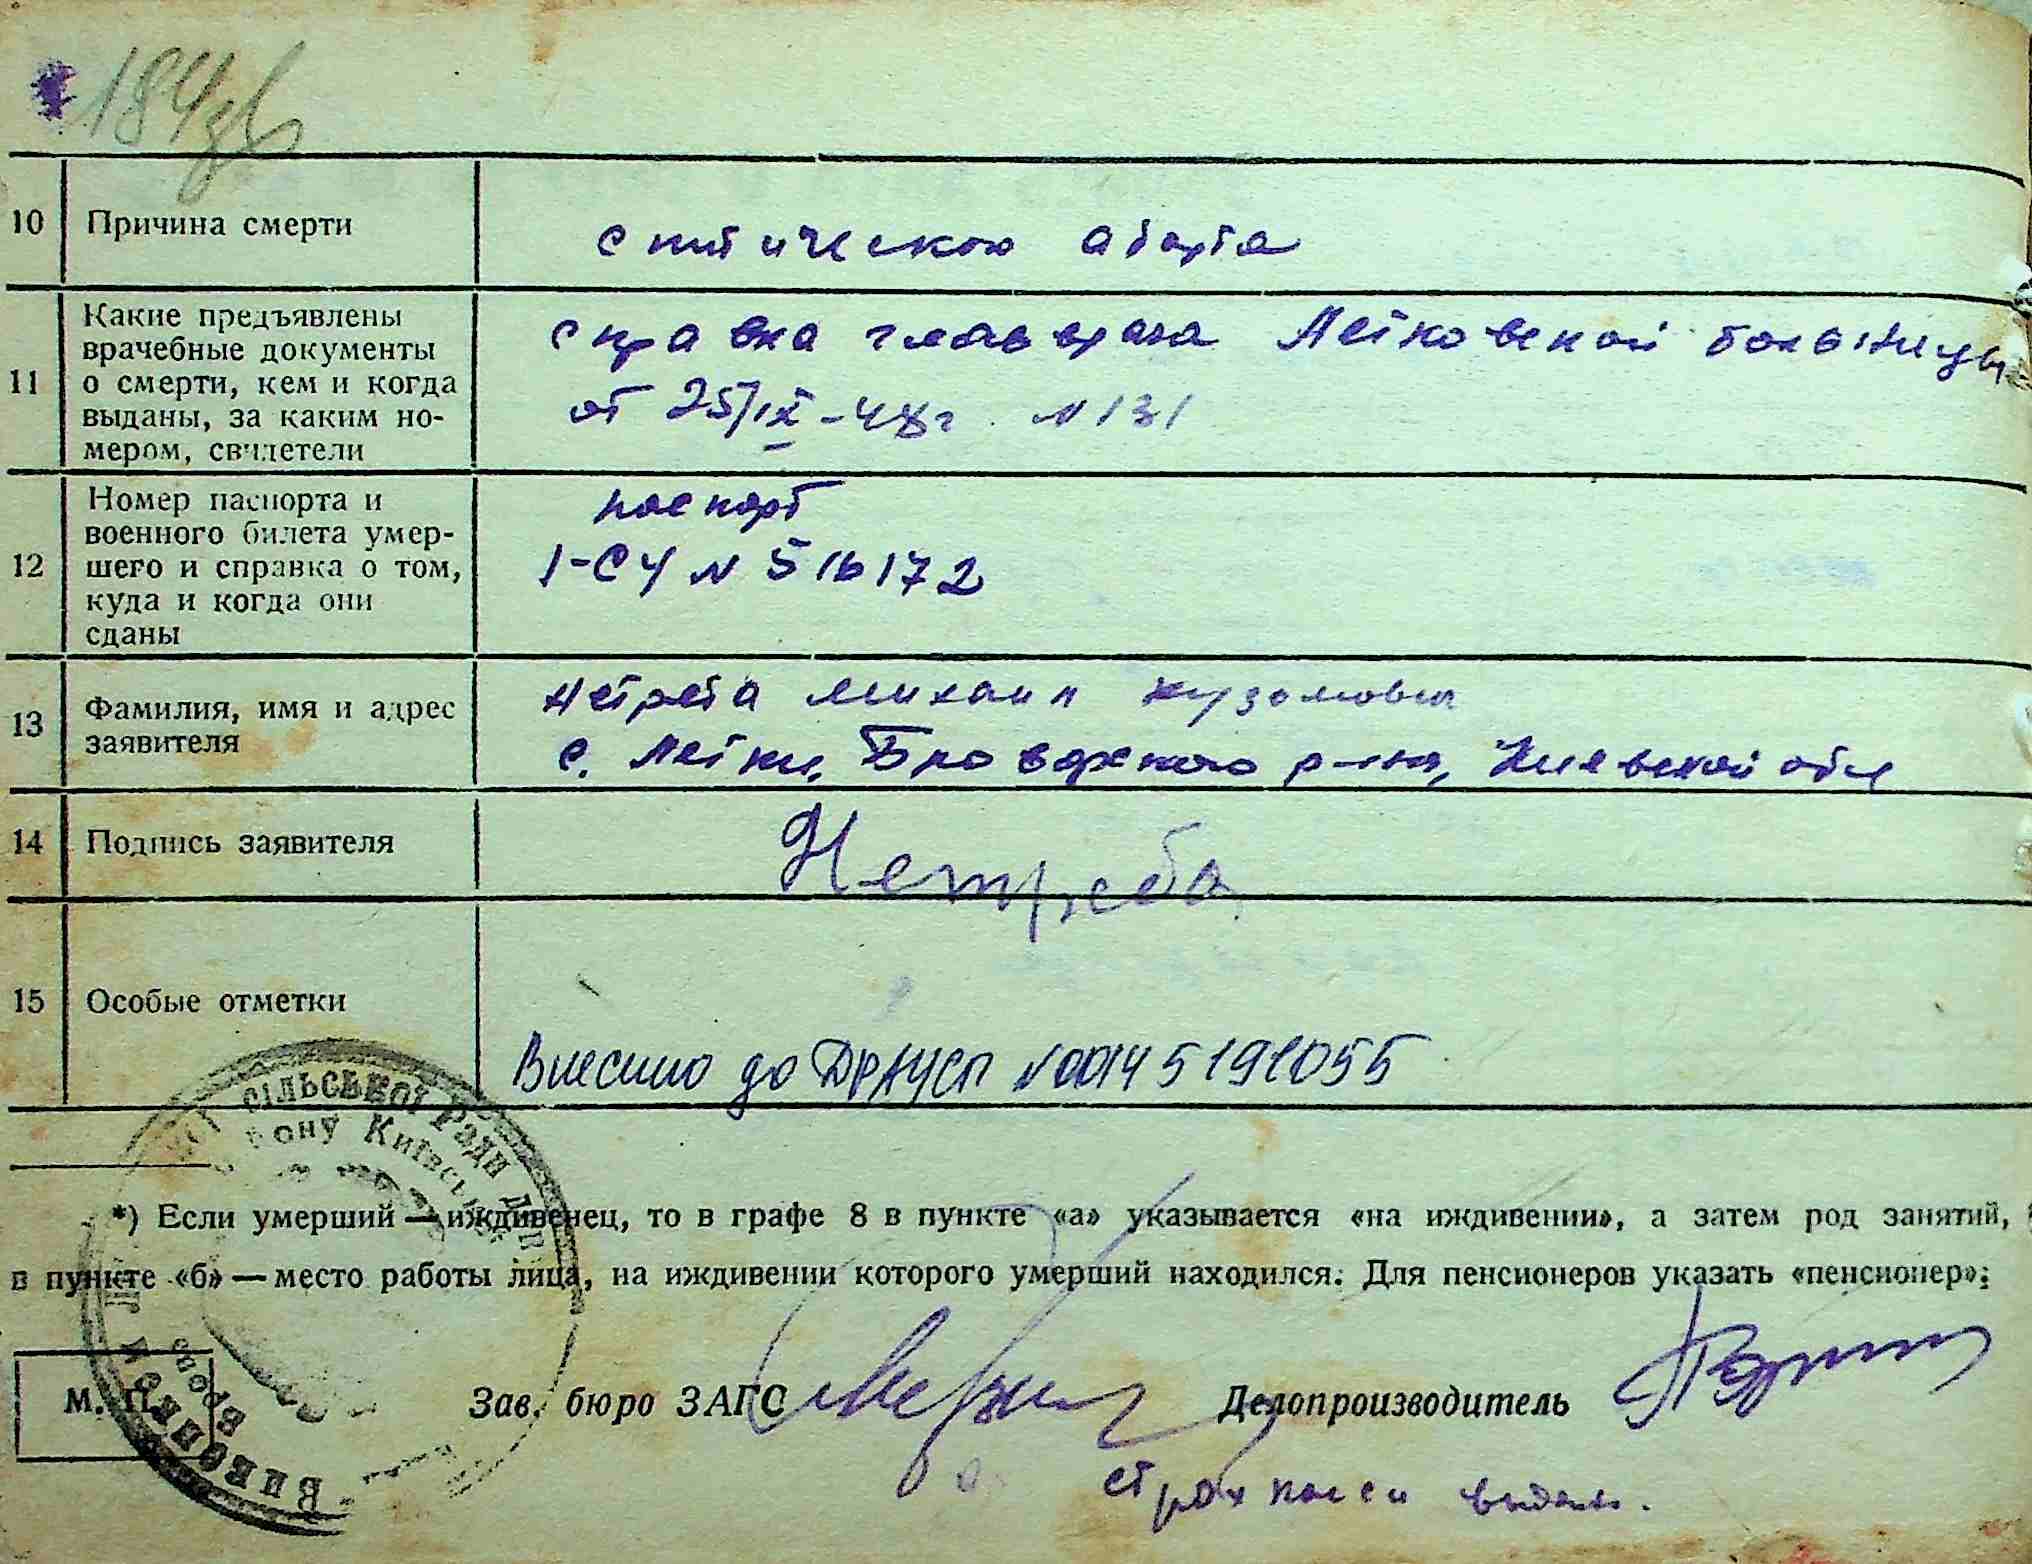 184зв
10 Причина смерти
септического аборта
11 Какие предъявлены
врачебные документы
о смерти, кем и когда
выданы, за каким но-
мером, свидетели
справка главврача Летковской больницы
от 25/IX-48г. N 131
12 Номер паспорта и
военного билета умер-
шего и справка о том,
куда и когда они
сданы
паспорт
I-СУ N 516172
13 Фамилия, имя и адрес
заявителя
Нетреба Михаил Кузьмович
с. Летки, Броварского р-на, Киевской обл
14 Подпись заявителя
Нетреба
15 Особые отметки
Внесено до ДРАЦСГ N00145191055
сільської Ради д
ону Київської
*) Если умерший — иждивенец, то в графе 8 в пункте «а» указывается «на иждивении», а затем род занятий,
в пункте «б» — место работы лица, на иждивении которого умерший находился. Для пенсионеров указать «пенсионер».
М. П.
Викон
Зав. бюро ЗАГС
Делопроизводитель
выдан.